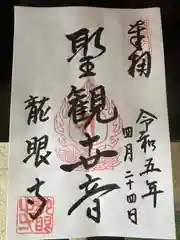 奉拝
令和五年
四月二十四日
聖観世音
龍眼寺